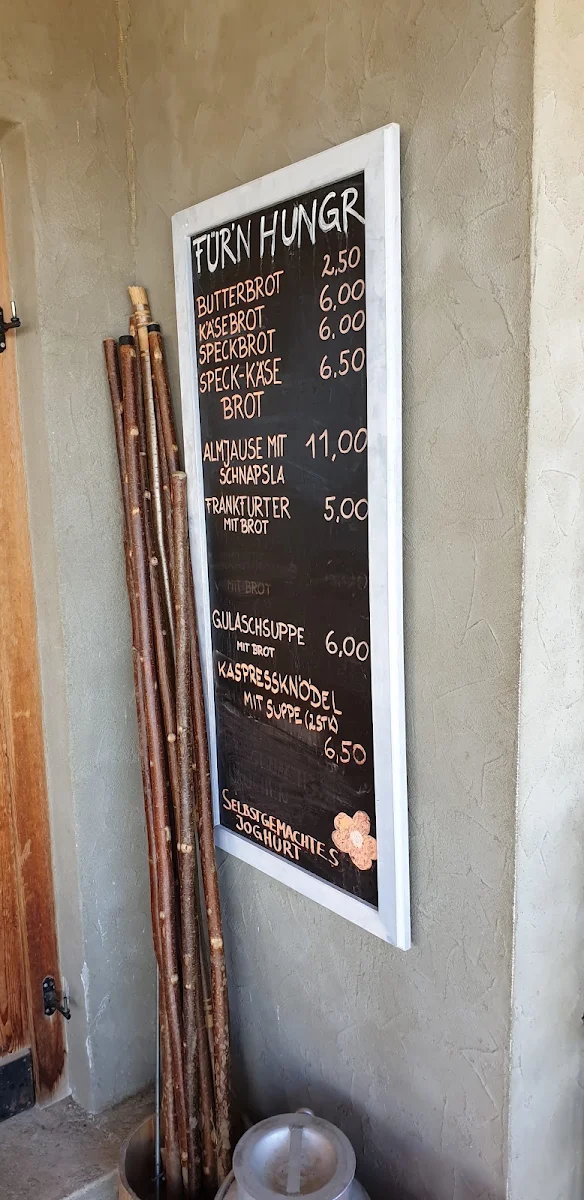 FÜR'N HUNGR
BUTTERBROT 2,50
KÄSEBROT 6,00
SPECKBROT 6,00
SPECK-KÄSE 6,50
BROT
ALMJAUSE MIT 11,00
SCHNAPSLA
FRANKFURTER 5,00
MIT BROT
MIT BROT
GULASCHSUPPE 6,00
MIT BROT
KASPRESSKNÖDEL
MIT SUPPE (2STK)
6,50
SELBSTGEMACHTES
JOGHURT